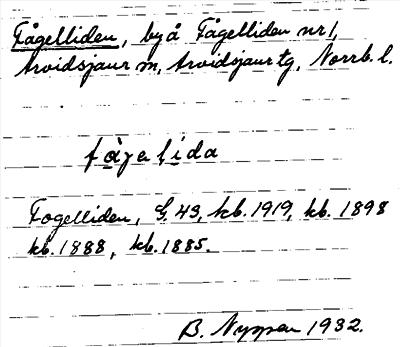 Fågelliden, by å Fågelliden nr 1,
Arvidsjaur sn, Arvidsjaur tg, Norrb. l.
fågelida
Fogelliden, G. 43, kb. 1919, kb. 1898
kb. 1888, kb. 1885.
B. 1932.